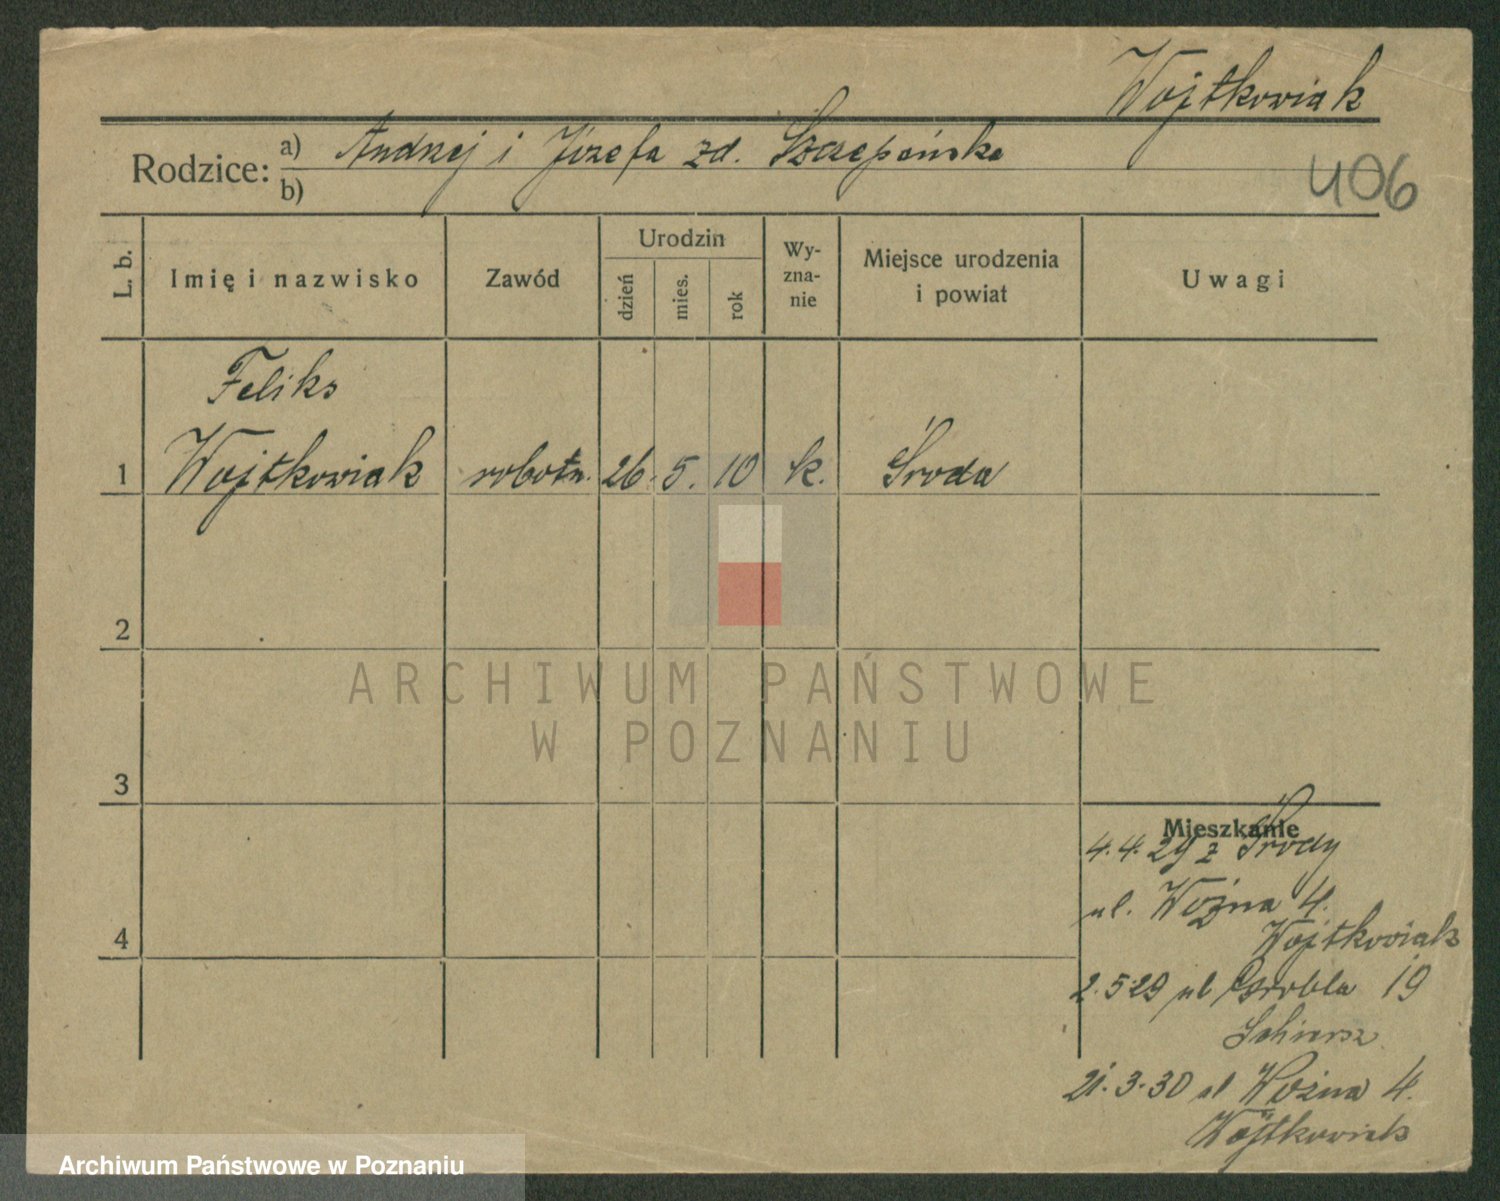 Wojtkowiak
Rodzice: a) Andrzej i Józefa zd. Szczepańska
b)
406
L. b.
Imię i nazwisko
Zawód
Urodzin
dzień
mies.
rok
Wy-
zna-
nie
Miejsce urodzenia
i powiat
Uwagi
Feliks
1 Wojtkowiak robotn. 26. 5. 10 k. Środa
2
3
4
ARCHIWUM PAŃSTWOWE
W POZNANIU
Mieszkanie
4.4.29 z Środy
ul. Woźna 4.
Wojtkowiak
2.5.29 ul Grobla 19
21.3.30 ul Woźna 4.
Wojtkowiak
Archiwum Państwowe w Poznaniu